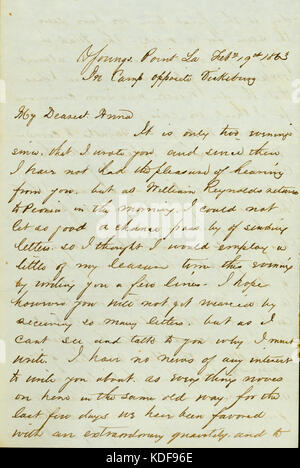 Youngs Point La Feb. 19th 1863
In Camp opposite Vicksburg
My Dearest Anna
It is only two evenings
since that I wrote you and since then
I have not had the pleasure of hearing
from you, but as William Reynolds returns
to Peoria in the morning I could not
let as good a chance pass by of sending
letters. so I thought I would employ a
little of my leasure time this evening
by writing you a few lines. I hope
however you will not get wearied by
receiving so many letters, but as I
cant see and talk to you why I must
write. I have no news of any interest
to write you about, as every thing moves
on here in the same old way, for the
last few days we have been favored
with an extraordinary quantity, and to
alamy
KDF96E